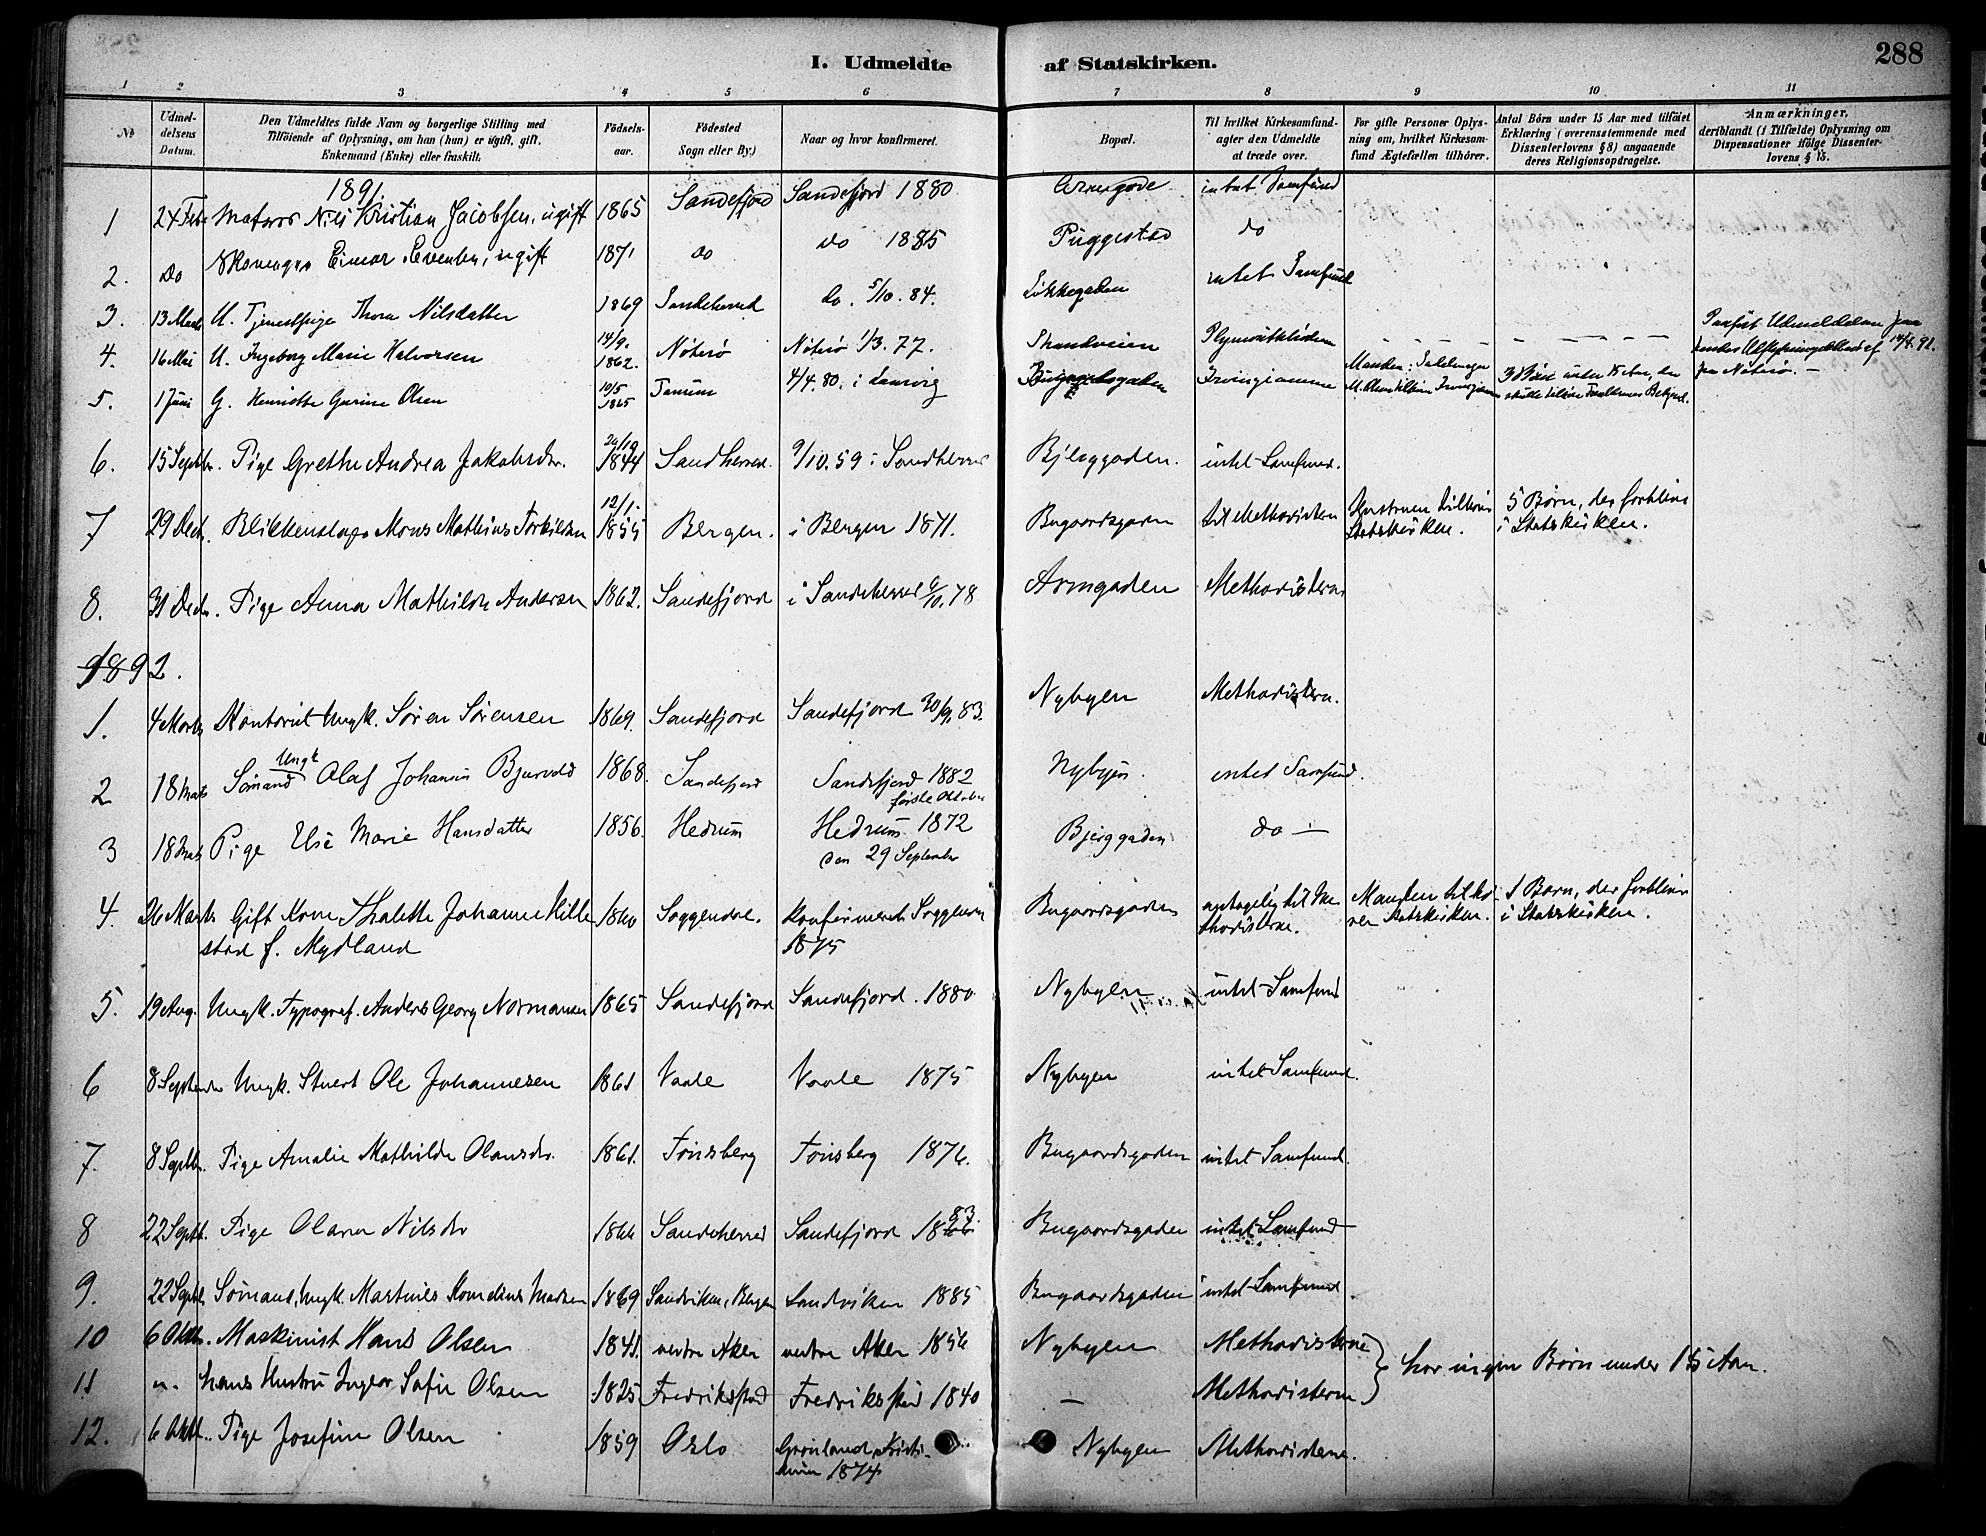 288
I. Udmeldte af Statskirken.
1 2 3 4 5 6 7 8 9 10 11
№
Udmel-
delsens
Datum.
Den Udmeldtes fulde Navn og borgerlige Stilling med
Tilføiende af Oplysning, om han (hun) er ugift, gift,
Enkemand (Enke) eller fraskilt.
Fødsels-
aar.
Fødested
Sogn eller By.)
Naar og hvor konfirmeret.
Bopæl.
Til hvilket Kirkesamfund-
agter den Udmeldte
at træde over.
For gifte Personer Oplys-
ning om, hvilket Kirkesam-
fund Ægtefællen tilhører.
Antal Børn under 15 Aar med tilføiet
Erklæring (overensstemmende med
Dissenterlovens § 8) angaaende
deres Religionsopdragelse.
Anmærkninger,
deriblandt (i Tilfælde) Oplysning om
Dispensationer ifølge Dissenter-
lovens § 15.
1891.
1 24 Feb Matros Nils Kristian Jacobsen, ugift 1865 Sandefjord Sandefjord 1880 intet Samfund
2. Do Einar Evensen, ugift 1871 do do 1885 Puggestad do
3. 13 Marts U. Tjenestpige Thora Nilsdatter 1869 Sandeherred do. 5/10. 84. Løkkegaden intet Samfund
4. 16 Mai U. Ingeborg Marie Halvorsen 14/9. 1862. Nøterø Nøterø 1/3. 77. Strandveien
5. 1 Juni G. Henriette Gurine Olsen 10/5 1865 Tanum 4/4 80. i Laurvig
6. 15 Septbr. Pige Grethe Andrea Jakobsdr. 1844 Sandherred. 9/10. 59 i Sandherred Bjerggaden. intet Samfund.
7 29 Decbr. Blikkenslager Mons Mathias Torkildsen 12/1. 1855 Bergen. i Bergen 1871. Bugaardsgaden til Methodisterne Hustruen tilhører Statskirken. 5 Børn, der forbliver i Statskirken.
8. 31 Decbr. Pige Anna Mathilde Andersen 1862. Sandefjord i Sandeherred 6/10. 78 Armgaden Methodisterne
1892.
1. 4 Marts Kontorist Ungk. Søren Sørensen 1869. Sandefjord Sandefjord 30/9. 83. Nybyen Methodistern.
2 18 Marts Sømand Ungk Olaf Johannes Bjervold 1868. Sandefjord Sandefjord 1882 første Oktober Nybyen. intet Samfund.
3 18 Marts Pige Else Marie Hansdatter 1856. Hedrum Hedrum 1872 den 29 September Bjerggaden do —
4. 26 Marts Gift Kone Thalette Johanne Hille-
stad f. Mydland 1860 Soggendal. konfirmeret Soggendal 1875 Bugaardsgaden antagelig til Me-
thodisterne. Manden tilhø-
rer Statskirken. 1 Barn, der forbliver i Statskirken.
5. 19 Aug. Ungk. Typograf. Anders Georg Normansen 1865 Sandefjord Sandefjord. 1880 Nybyen intet Samfund
6 8 September Ungk. Stuert Ole Johannesen 1861 Vaale Vaale 1875 Nybyen intet Samfund.
7. 8 Septbr. Pige Amalie Mathilde Olausdr. 1861. Tønsberg Tønsberg 1876. Bugaardsgaden intet Samfund.
8 22 Septbr. Pige Olava Nilsdr 1866 Sandeherred Sandefjord 1883 Bugaardsgaden intet Samfund
9. 22 Septbr. Sømand, Ungk. Martinius Madsen 1869 Sandviken, Bergen Sandviken 1885 Bugaardsgaden intet Samfund
10 6 Oktbr. Maskinist Hans Olsen 1841. vestre Aker vestre Aker 1856 Nybyen Methodisterne har ingen Børn under 15 Aar.
11 ". hans Hustru Inger Sofie Olsen 1825 Fredrikstad Fredrikstad 1840 — Methodisterne
12. 6 Oktbr. Pige Josefine Olsen 1859 Oslo Grønland, Kristi-
ania 1874 Nybyen Methodisterne.